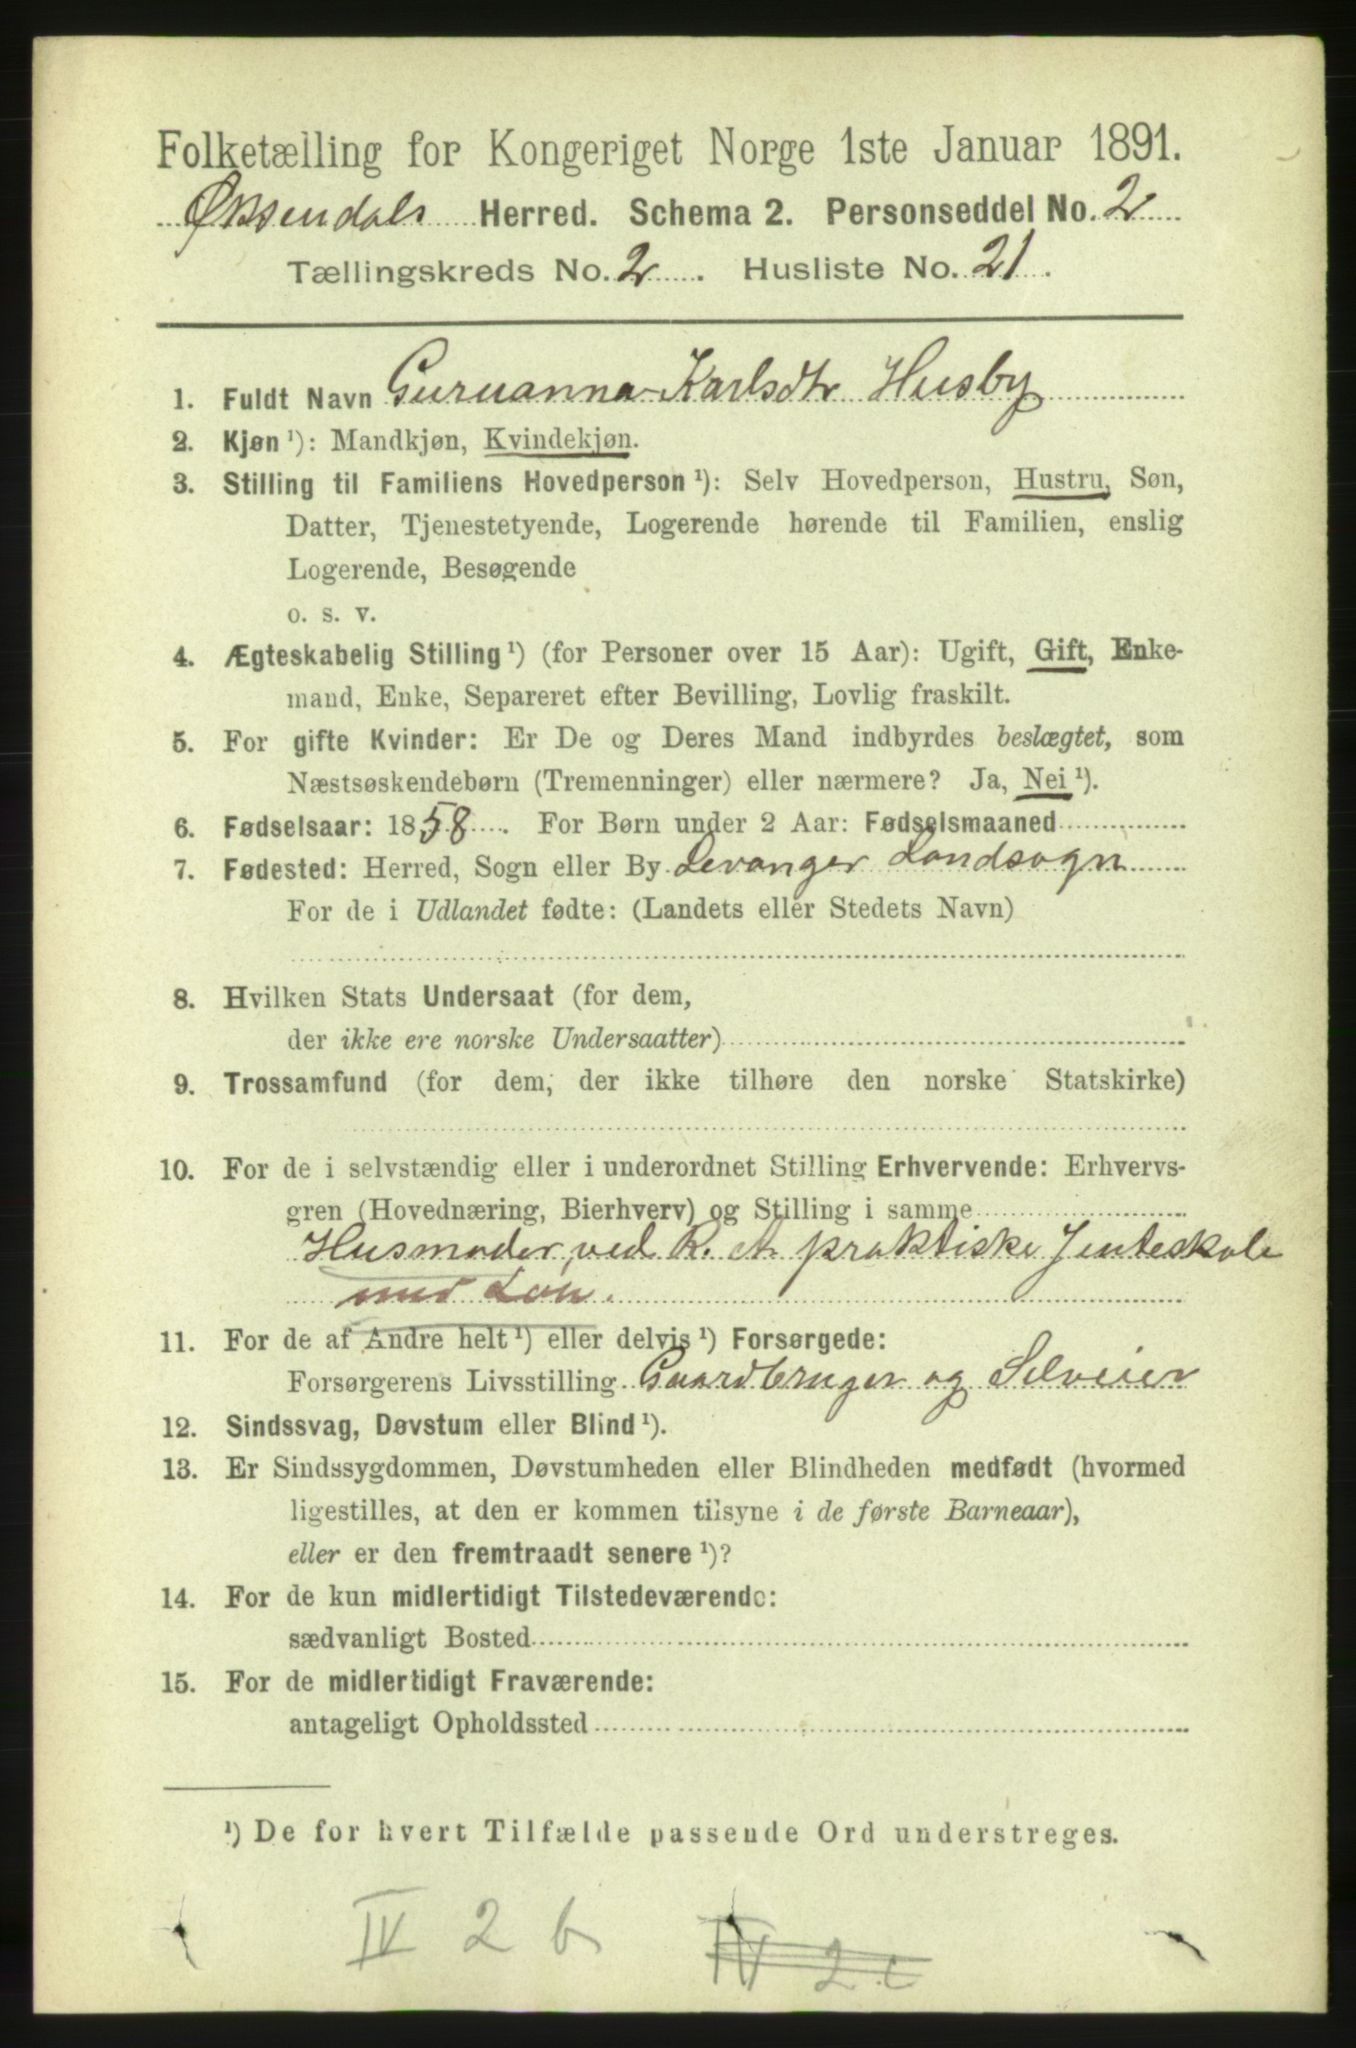 Folketælling for Kongeriget Norge 1ste Januar 1891.
Øksendals Herred. Schema 2. Personseddel No. 2
Tællingskreds No. 2. Husliste No. 21.
1. Fuldt Navn Guruanna Karlsdtr Husby
2. Kjøn ¹): Mandkjøn, Kvindekjøn.
3. Stilling til Familiens Hovedperson ¹): Selv Hovedperson, Hustru, Søn,
Datter, Tjenestetyende, Logerende hørende til Familien, enslig
Logerende, Besøgende
o. s. v.
4. Ægteskabelig Stilling ¹) (for Personer over 15 Aar): Ugift, Gift, Enke-
mand, Enke, Separeret efter Bevilling, Lovlig fraskilt.
5. For gifte Kvinder: Er De og Deres Mand indbyrdes beslægtet, som
Næstsøskendebørn (Tremenninger) eller nærmere? Ja, Nei ¹).
6. Fødselsaar: 1858. For Børn under 2 Aar: Fødselsmaaned
7. Fødested: Herred, Sogn eller By Levanger Landsogn
For de i Udlandet fødte: (Landets eller Stedets Navn)
8. Hvilken Stats Undersaat (for dem,
der ikke ere norske Undersaatter)
9. Trossamfund (for dem, der ikke tilhøre den norske Statskirke)
10. For de i selvstændig eller i underordnet Stilling Erhvervende: Erhvervs-
gren (Hovednæring, Bierhverv) og Stilling i samme
Husmoder ved R. A. praktiske Jenteskole
med Løn.
11. For de af Andre helt ¹) eller delvis ¹) Forsørgede:
Forsørgerens Livsstilling Gaardbruger og Selveier
12. Sindssvag, Døvstum eller Blind ¹).
13. Er Sindssygdommen, Døvstumheden eller Blindheden medfødt (hvormed
ligestilles, at den er kommen tilsyne i de første Barneaar),
eller er den fremtraadt senere ¹)?
14. For de kun midlertidigt Tilstedeværende:
sædvanligt Bosted
15. For de midlertidigt Fraværende:
antageligt Opholdssted
¹) De for hvert Tilfælde passende Ord understreges.
IV 2 b IV 2 c